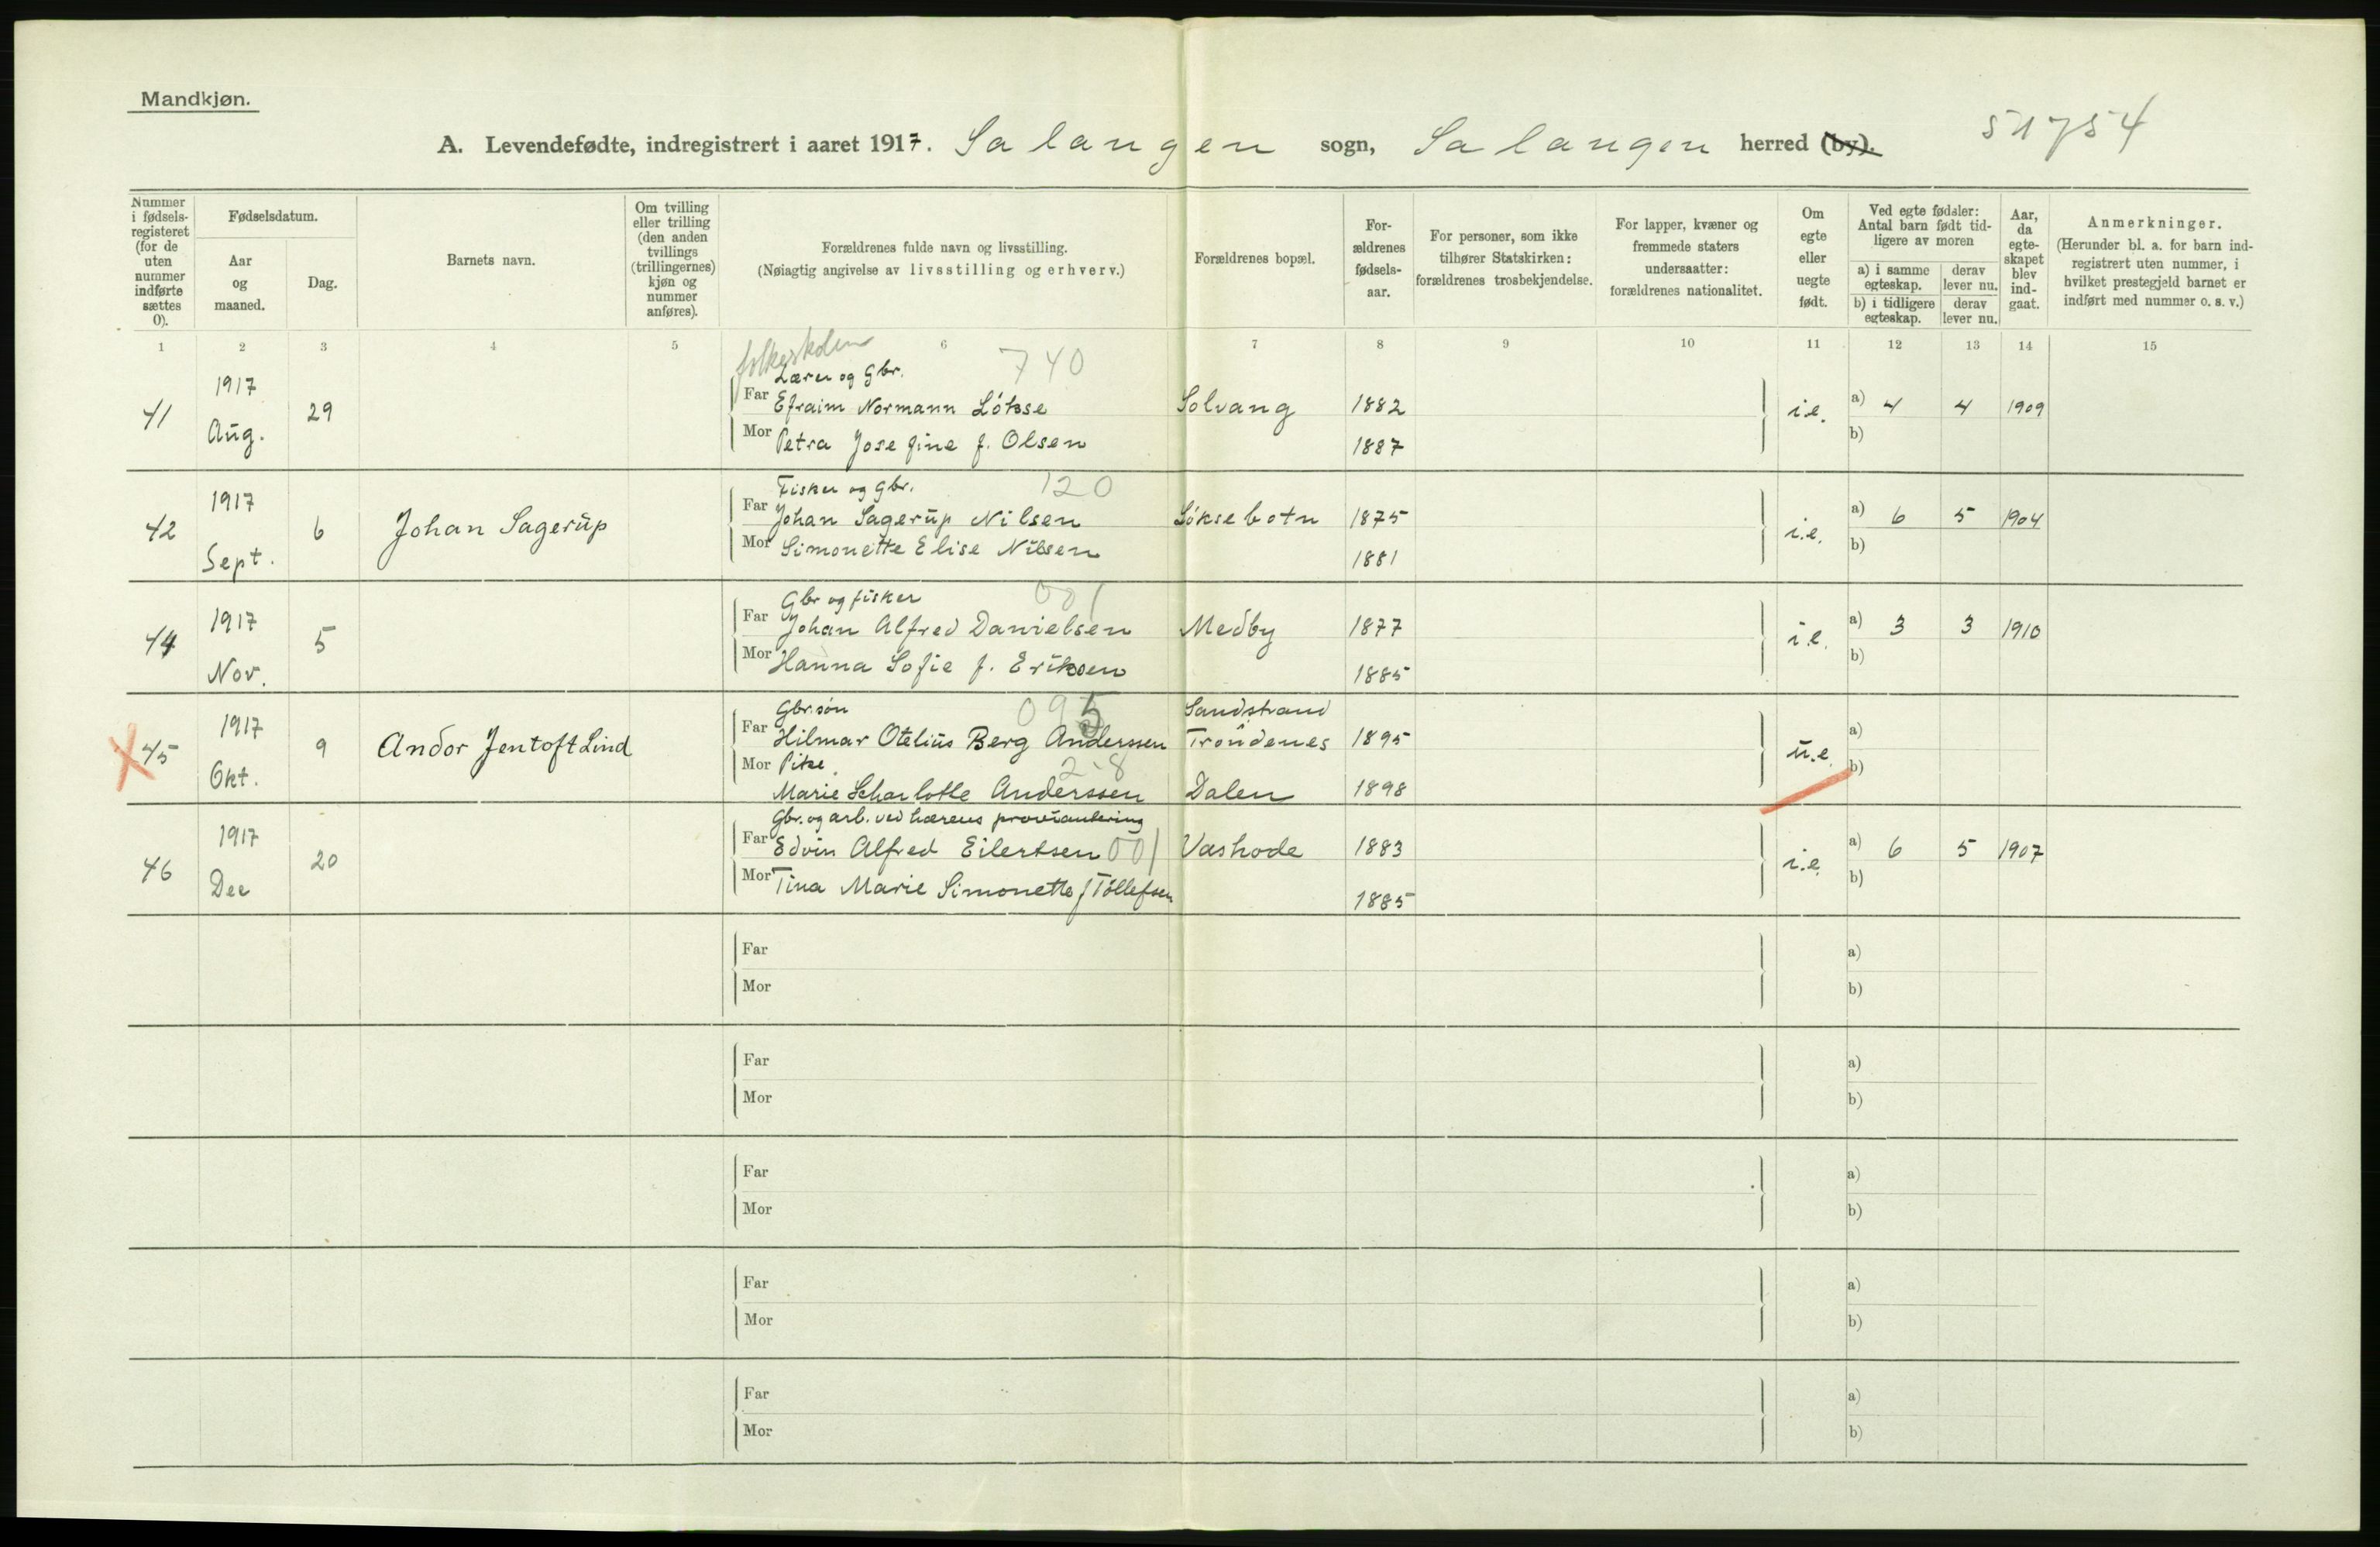 Mandkjøn.
A. Levendefødte, indregistrert i aaret 1917. Salangen sogn, Salangen herred (by). 51754
Nummer i fødsels-registeret (for de uten nummer indførte sættes 0).
Fødselsdatum.
Aar og maaned.
Dag.
Barnets navn.
Om tvilling eller trilling (den anden tvillings (trillingernes) kjøn og nummer anføres).
Forældrenes fulde navn og livsstilling.
(Nøiagtig angivelse av livsstilling og erhverv.)
Forældrenes bopæl.
For-ældrenes fødsels-aar.
For personer, som ikke tilhører Statskirken: forældrenes trosbekjendelse.
For lapper, kvæner og fremmede staters undersaatter: forældrenes nationalitet.
Om egte eller uegte født.
Ved egte fødsler: Antal barn født tid-ligere av moren
a) i samme egteskap.
derav lever nu.
b) i tidligere egteskap.
derav lever nu.
Aar, da egte-skapet blev ind-gaat.
Anmerkninger.
(Herunder bl. a. for barn ind-registrert uten nummer, i hvilket prestegjeld barnet er indført med nummer o. s. v.)
1 2 3 4 5 6 7 8 9 10 11 12 13 14 15
folkeskolen
Lærer og Gbr. 740
41 1917 Aug. 29 Far Efraim Normann Løkse Solvang 1882 i.e. a) 4 4 1909
Mor Petra Josefine f. Olsen 1887 b)
Fisker og Gbr. 120
42 1917 Sept. 6 Johan Sagerup Far Johan Sagerup Nilsen Løksebotn 1875 i.e. a) 6 5 1904
Mor Simonette Elise Nilsen 1881 b)
Gbr og fisker 001
44 1917 Nov. 5 Far Johan Alfred Danielsen Medby 1877 i.e. a) 3 3 1910
Mor Hanna Sofie f. Eriksen 1885 b)
Gbr.søn 095 Sandstrand
45 1917 Okt. 9 Andor Jentoft Lind Far Hilmar Otelius Berg Anderssen Trondenes 1895 u.e. a)
Mor Pike 2-8 b)
Marie Scharlotte Anderssen Dalen 1898
Gbr. og arb. ved hærens proviantering
46 1917 Dec 20 Far Edvin Alfred Eilertsen 001 Vashode 1883 i.e. a) 6 5 1907
Mor Tina Marie Simonette f Tollefsen 1885 b)
Far a)
Mor b)
Far a)
Mor b)
Far a)
Mor b)
Far a)
Mor b)
Far a)
Mor b)